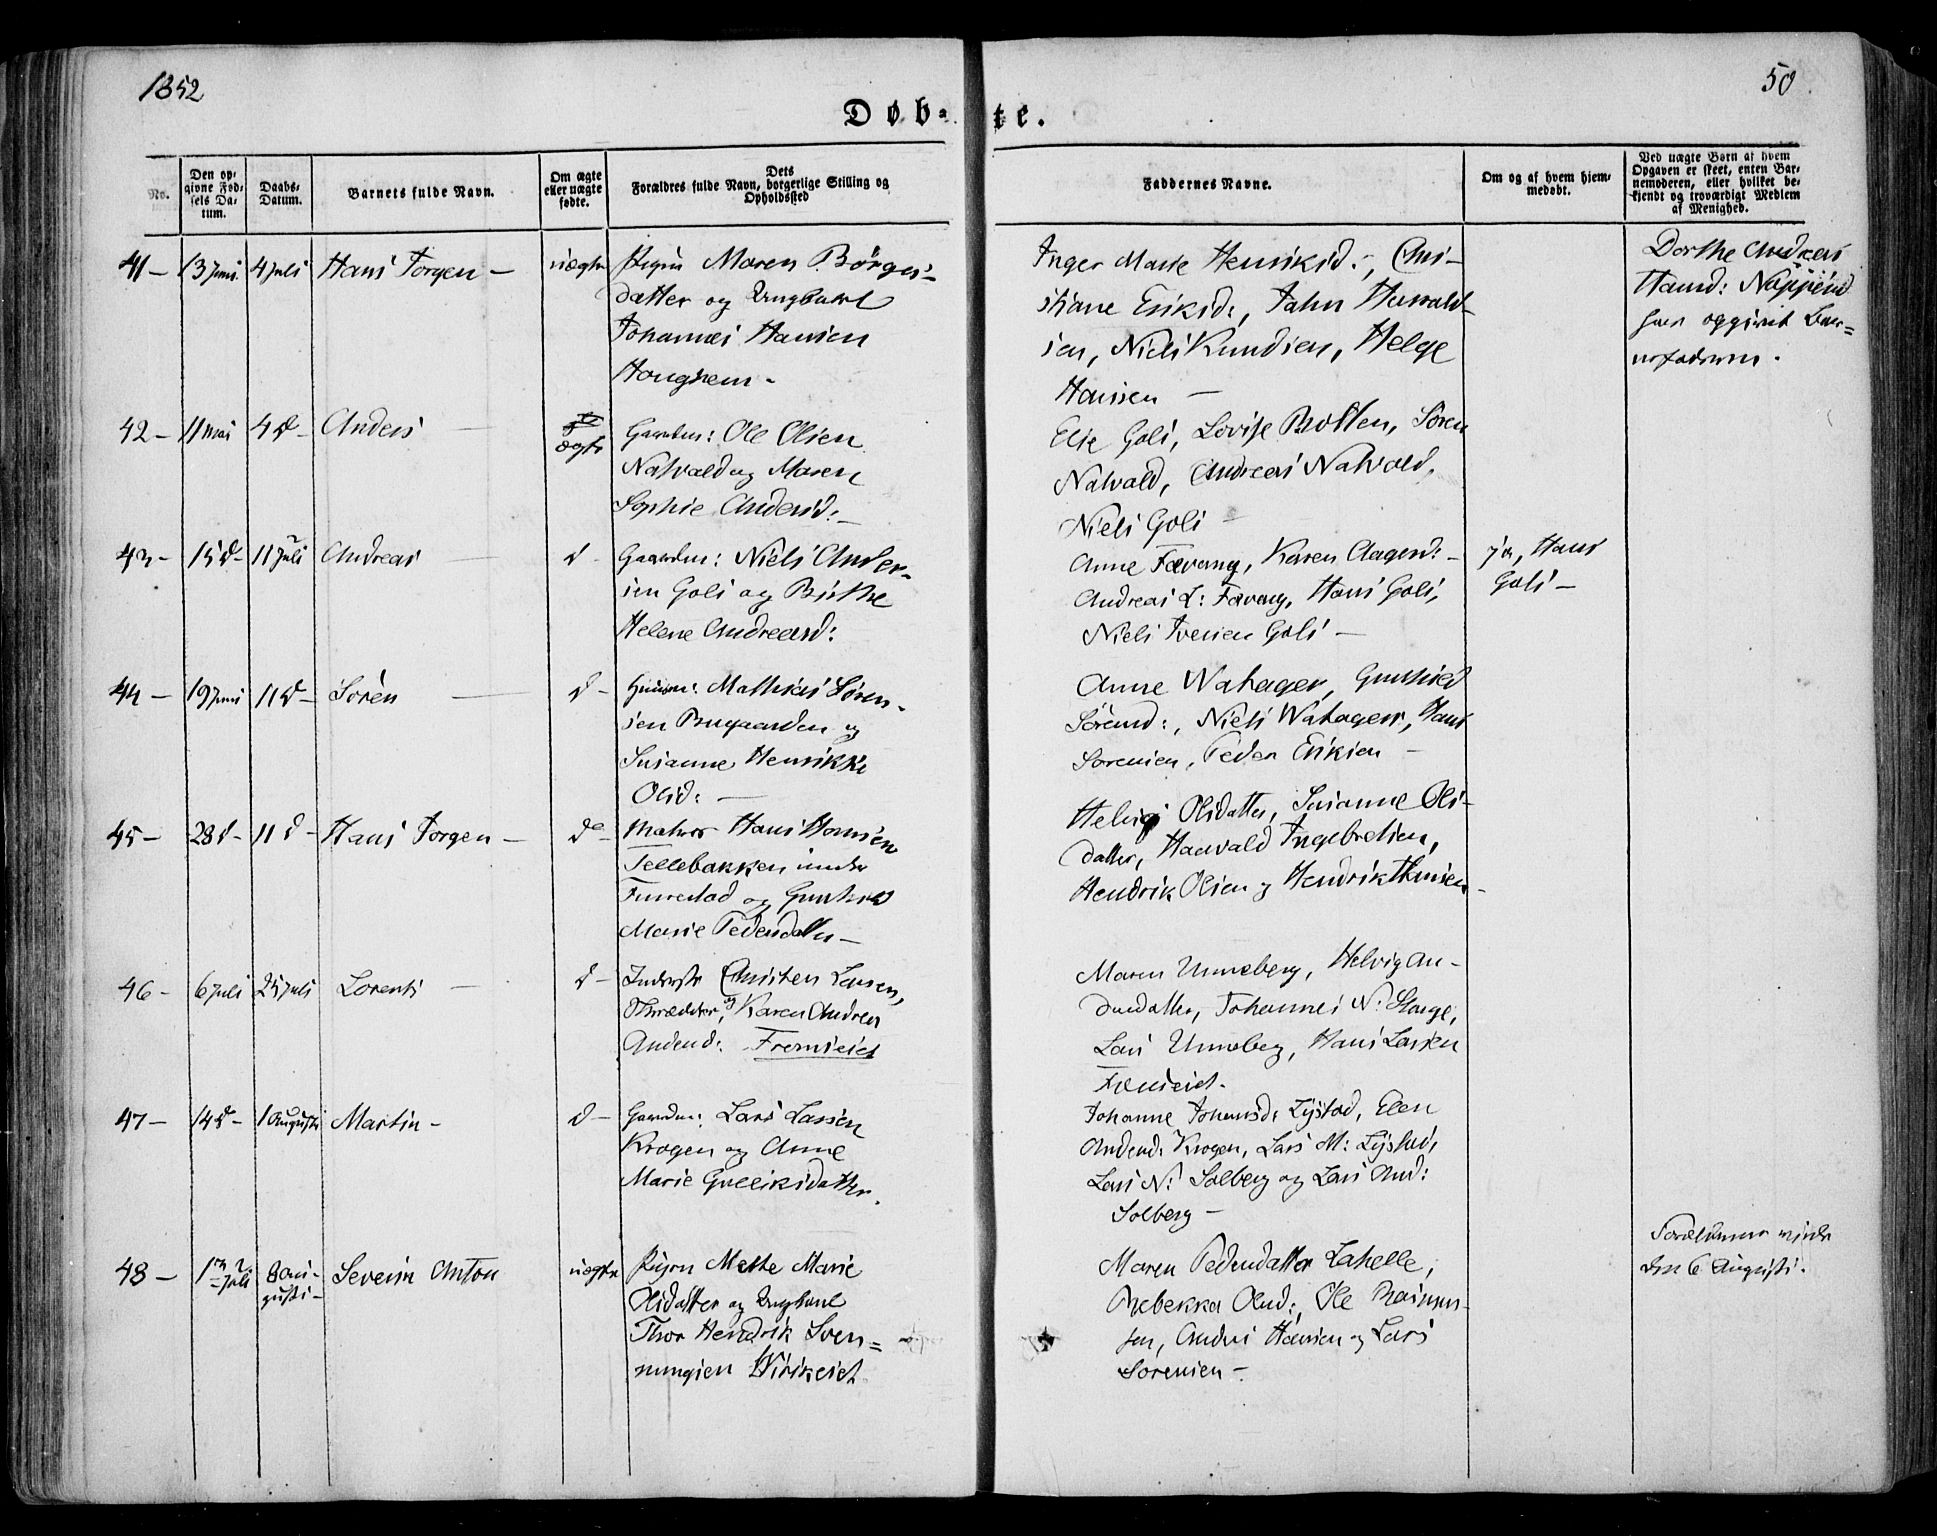 1852
50
Døb-
te.
No.
Den op-
givne Fød-
sels Da-
tum.
Daabs-
Datum.
Barnets fulde Navn.
Om ægte
eller uægte
fødte.
Dets
Forældres fulde Navn, borgerlige Stilling og
Opholdssted
Faddernes Navne.
Om og af hvem hjem-
medøbt.
Ved uægte Børn af hvem
Opgaven er skeet, enten Bar-
nemoderen, eller hvilket be-
kjendt og troværdigt Medlem
af Menighed.
41 - 13 Juni. 4 Juli Hans Jørgen - uægte Pigen Maren Børges-
datter og Ungkarl
Johannes Hansen
Inger Marie Henriksd:, Chri-
stiane Eriksd:, John Harvald-
sen, Niels Knudsen, Helge
Hansen -
Dorthe Andreas
Hansd:
har opgivet Bar-
nefaderen.
42 - 11 Mai 4 d - Anders - ægte Gaardm: Ole Olsen
Nalvald og Maren
Sophie Andersd: -
Else Goli, Lovise Botten, Søren
Nalvald, Andreas Nalvald,
Niels Goli -
43 - 15 d - 11 Juli Andreas d - Gaardm: Niels Ander-
sen Goli og Birthe
Helene Andreasd:
Anne Færvang, Karen Aagesd: -
Andreas L: Færvang, Hans Goli,
Niels Iversen Goli -
ja, Hans
Goli -
44 - 19 Juni 11 d - Søren - d - Mathias Søren-
sen Brugaarden og
Susanne Henrikke
Olsd: -
Anne Wahager, Gunhild
Sørensd:, Niels Wahager, Hans
Sørensen, Peder Eriksen -
45 - 28 d - 11 d - Hans Jørgen - do Matros Hans Hansen
Tellebakken under
Furrestad og Gunhild
Marie Pedersdatter -
Helvig Olsdatter, Susanne Ols-
datter, Haavald Ingebretsen,
Hendrik Olsen og Hendrik Hansen -
46 - 6 Juli 25 Juli Lorents - d - Inderste Christen Larsen,
og Karen Andrea
Andersd: Fremseiet
Maren Unneberg, Helvig An-
dersdatter, Johannes N: Hauge,
Lars Unneberg, Hans Larsen
Fremseiet.
47 - 14 d - 1 Augusti Martin - d - Gaardm: Lars Larsen
Krogen og Anne
Marie Gulliksdatter.
Johanne Johansd: Lystad, Elen
Andersd: Krogen, Lars M: Lystad,
Lars N: Solberg og Lars And:
Solberg -
48 - 1 Juli 8 Au-
gusti - Severin Anton uægte Pigen Mette Marie
Olsdatter og Ungkarl
Thor Hendrik Sven-
ningsen Virikeiet
Maren Pedersdatter Lahelle,
Rebekka Olsd:, Ole Rasmus-
sen, Anders Hansen og Lars
Sørensen -
Forældrene viede
den 6 Augusti.